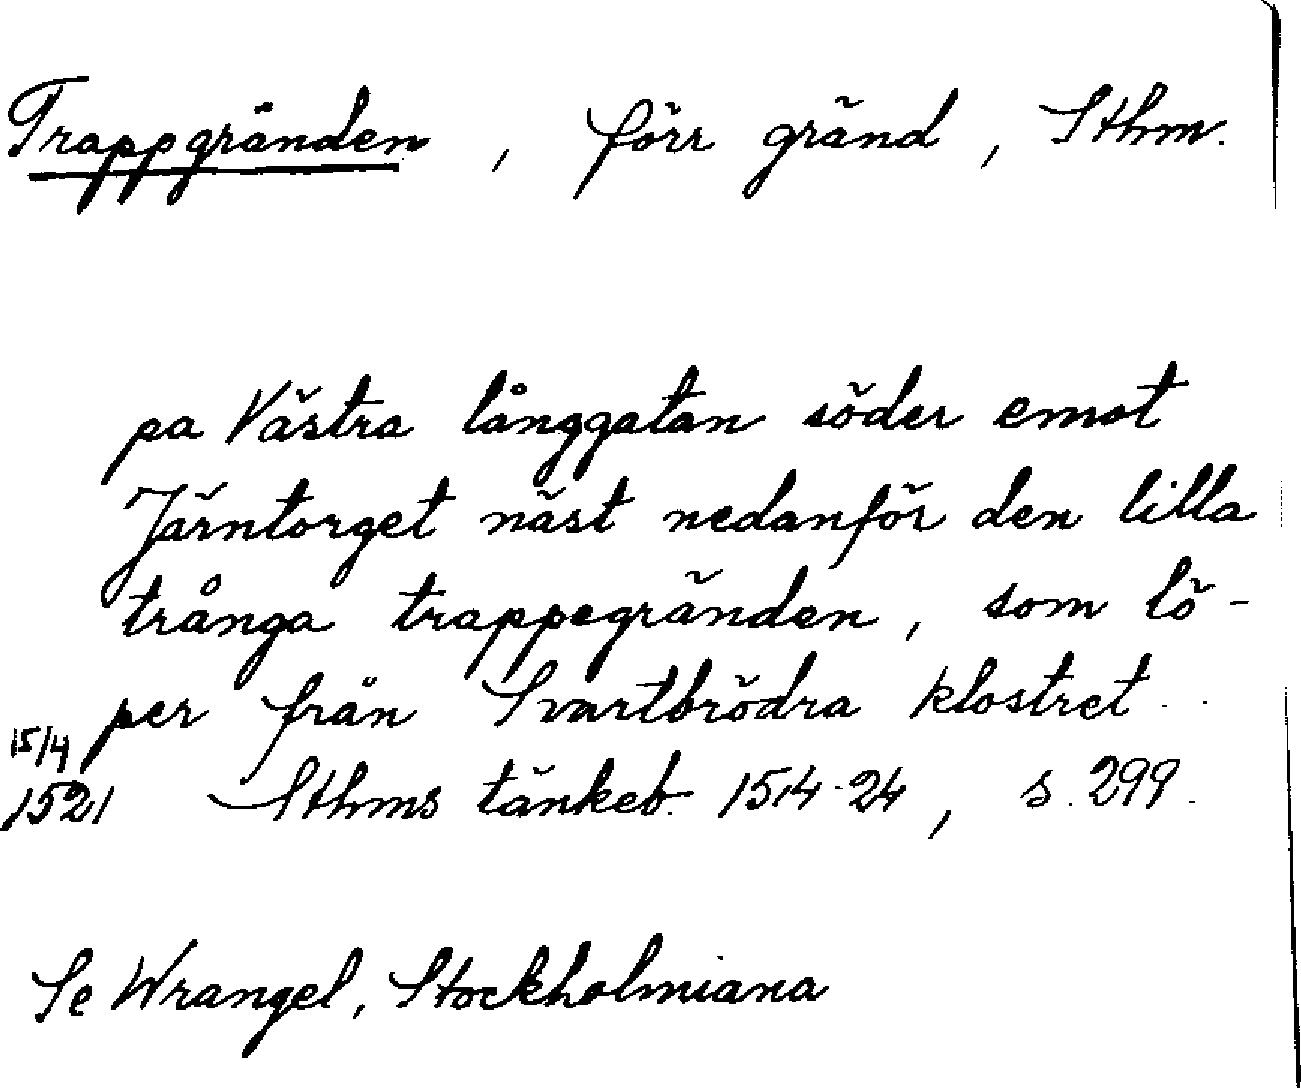 Trappgränden, förr gränd, Sthm.
pa Västra långgatan söder emot
Järntorget näst nedanför den lilla
trånga trappegränden, som lö-
per från Svartbrödra klostret..
15/4
1521 Sthms tänkeb. 1514-24, s. 299.
Se Wrangel, Stockholmiana